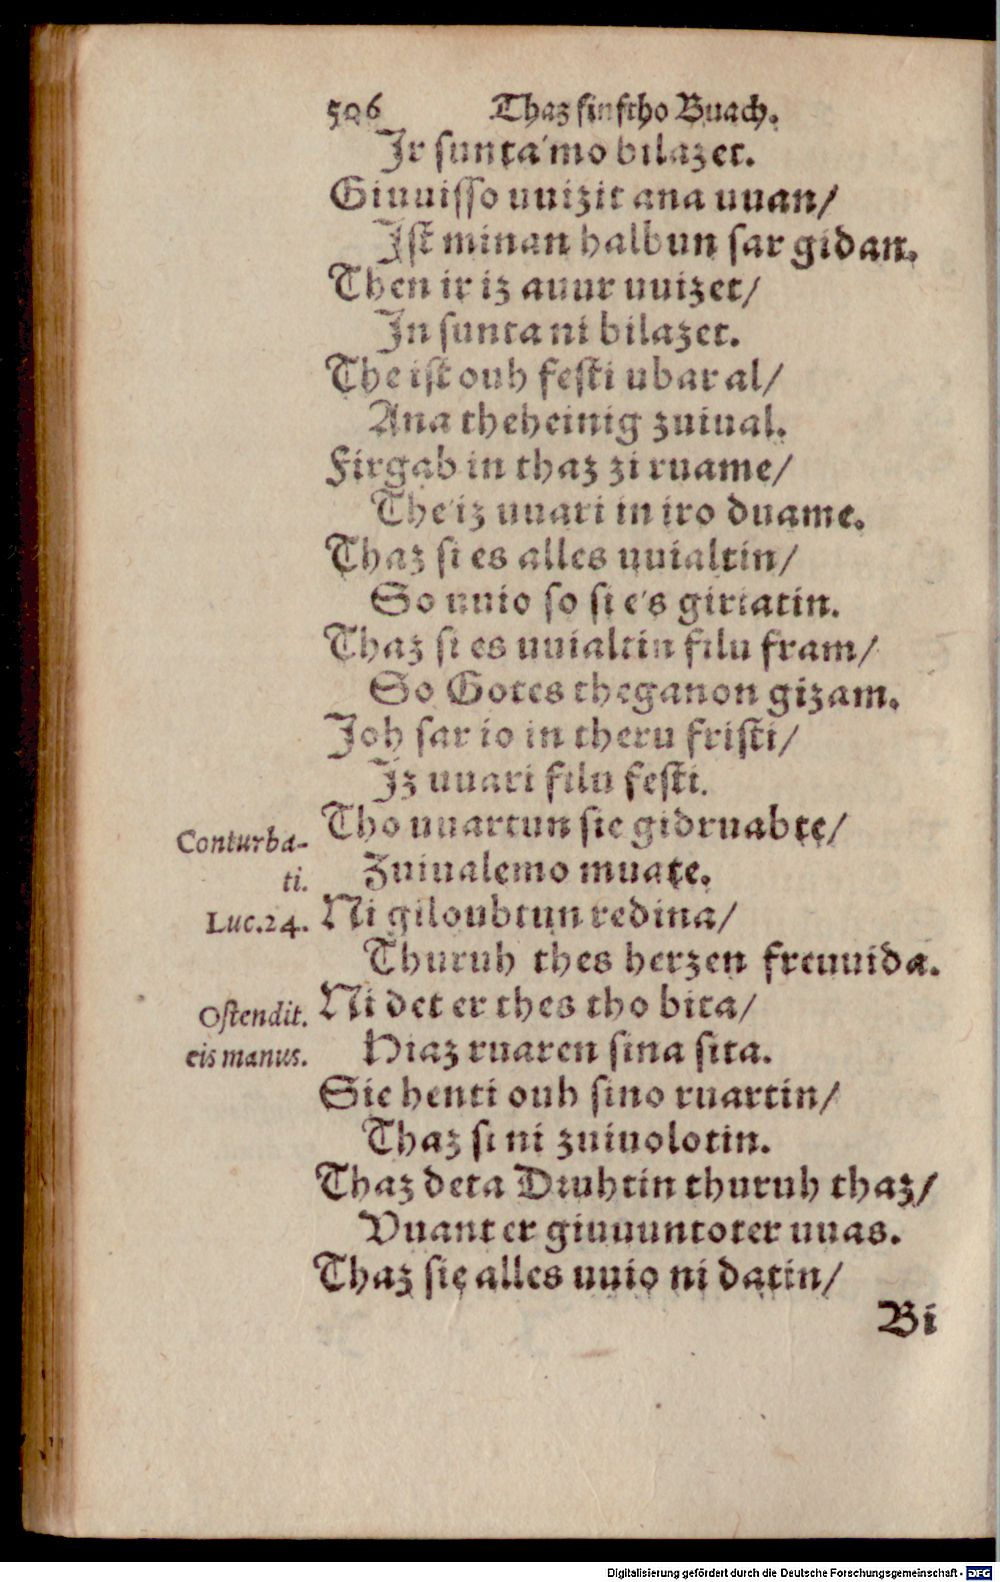 506 Thaz finftho Buach.
Jr sunta'mo bilazet.
Giuuisso uuizit ana uuan/
Jst minan halbun sar gidan.
Then ir iz auur uuizet/
Jn sunta ni bilazet.
The ist ouh festi ubar al/
Ana theheinig zuiual.
Firgab in thaz zi ruame/
The'iz uuari in iro duame.
Thaz si es alles uuialtin/
So uuio so si e's giriatin.
Thaz si es uuialtin filu fram/
So Gotes theganon gizam.
Joh sar io in theru fristi/
Jz uuari filu festi.
Tho uuartun sie gidruabte/
Conturba-
Zuiualemo muate.
ti.
Ni giloubtun redina/
Luc.24.
Thuruh thes herzen freuuida.
Ni det er thes tho bita/
Ostendit.
Hiaz ruaren sina sita.
eis manus.
Sie henti ouh sino ruartin/
Thaz si ni zuiuolotin.
Thaz deta Druhtin thuruh thaz/
Vuant er giuuuntoter uuas.
Thaz sie alles uuio ni datin/
Bi
Digitalisierung gefördert durch die Deutsche Forschungsgemeinschaft - DFG